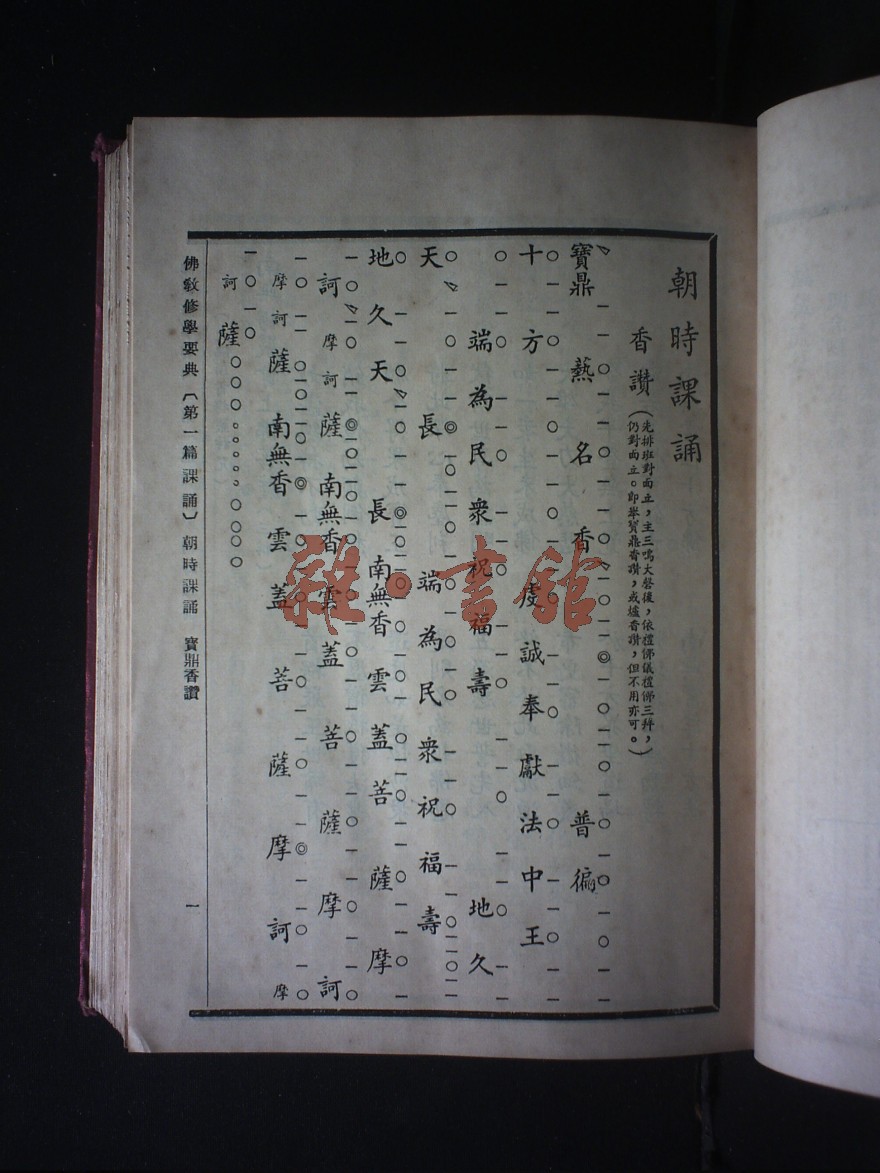 朝時課誦
香讚(先排班對面立，主三鳴大磬後，依禮佛儀禮佛三拜，
仍對面立。即举寶鼎香讚，或爐香讚，但不用亦可。)
寶鼎 熱 名 香 普 徧
十 方 虔 誠 奉 獻 法 中 王
端 為 民 衆 祝 福 壽 地 久
天 長 端 為 民 衆 祝 福 壽
地 久 天 長 南無香 雲 蓋 菩 薩 摩
訶 摩訶 薩 南無香 雲 蓋 菩 薩 摩 訶
摩訶 薩 南無香 雲 蓋 菩 薩 摩 訶 摩
訶 薩
佛教修學要典〔第一篇課誦〕朝時課誦 寶鼎香讚
一
雜·書館